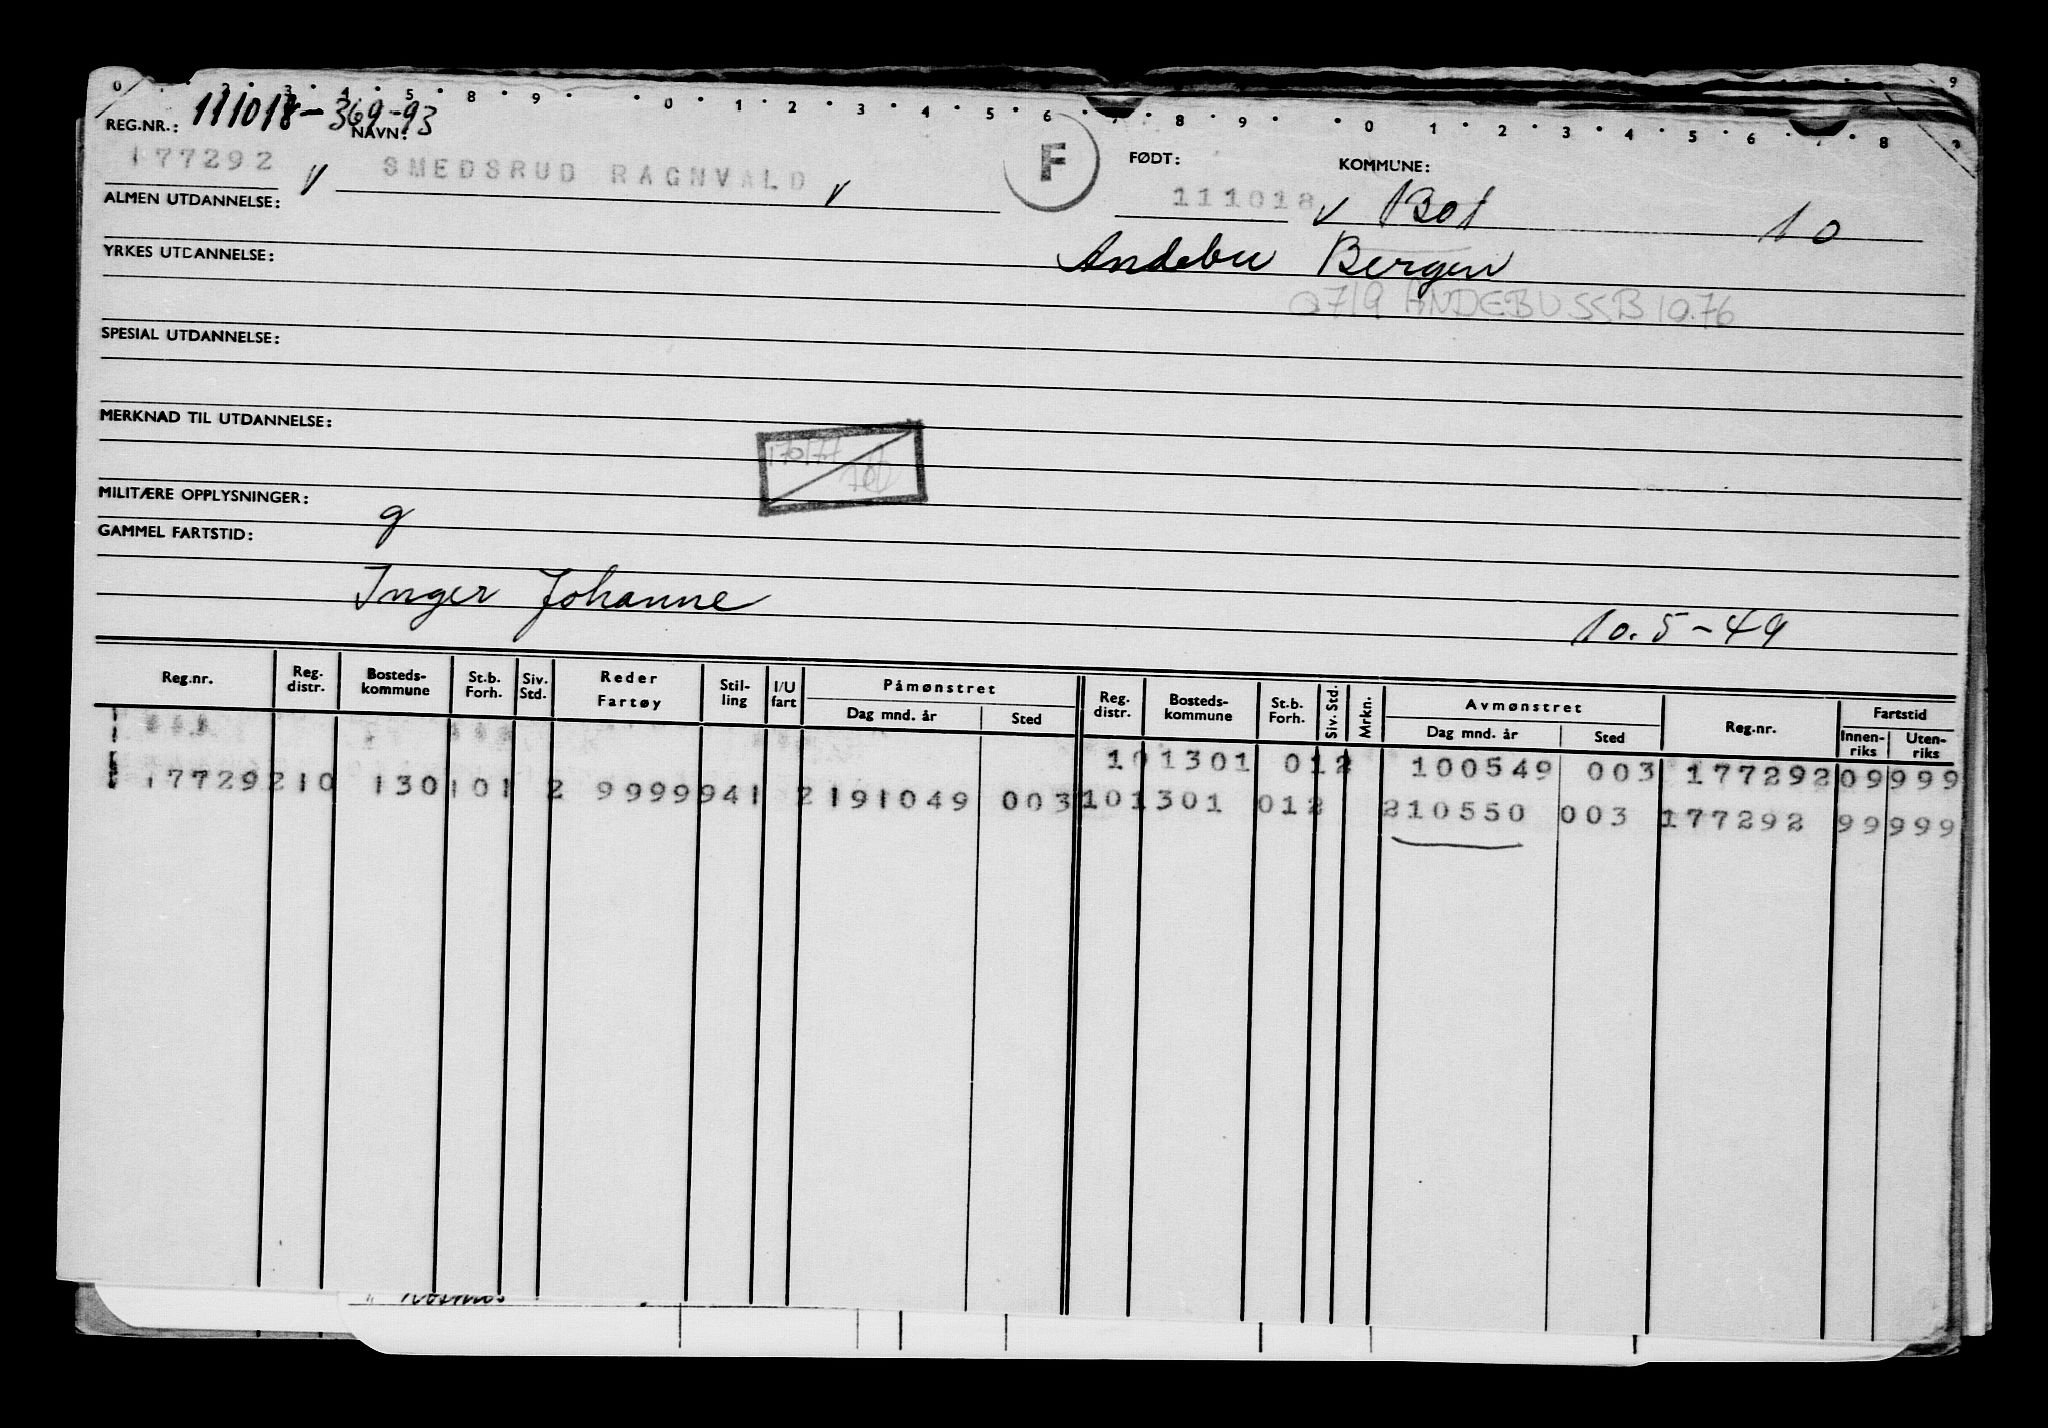 0 . 2 . 3 . 4 . 5 8 . 9 . . 0 . 1 . 2 . 3 . 4 . 5 . 6 . 7 . 8 . 9 . . 0 . 1 . 2 . 3 . 4 . 5 . 6 . . 8 9
REG.NR.: 111018-369-93
NAVN:
FØDT: KOMMUNE:
177292 V SMEDSRUD RAGNVALD V F 111018 V Bol 10
ALMEN UTDANNELSE:
Andebu Bergen
YRKES UTDANNELSE:
0719 ANDEBU SSB 10.76
SPESIAL UTDANNELSE:
MERKNAD TIL UTDANNELSE:
170/77
MILITÆRE OPPLYSNINGER:
g
GAMMEL FARTSTID:
Inger Johanne 10.5-49
Reg.nr. Reg. distr. Bosteds-kommune St.b. Forh. Siv. Std. Reder Fartøy Stil-ling I/U fart Påmønstret Dag mnd. år Sted Reg. distr. Bosteds-kommune St.b. Forh. Siv. Std. Mrkn. Avmønstret Dag mnd. år Sted Reg.nr. Fartstid Innen-riks Uten-riks
10 1301 012 100549 003 177292 09 999
177292 10 1301 01 2 9999 941 2 191049 003 10 1301 012 210550 003 177292 99 999